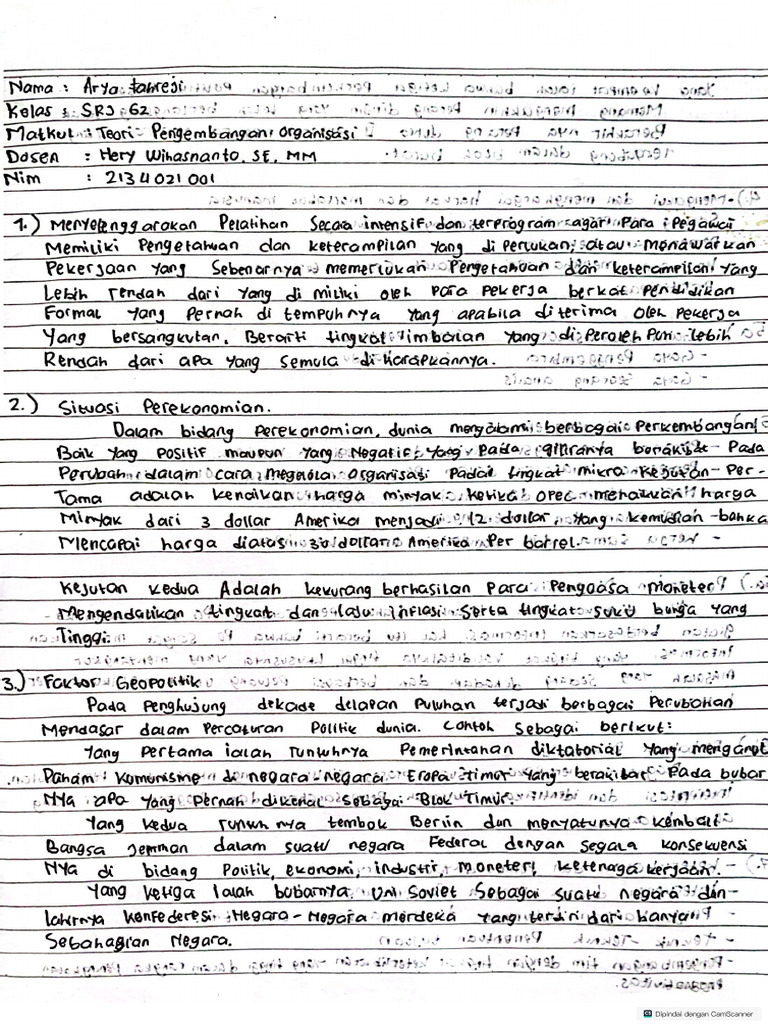 Nama : Arya tahreji
Kelas : SRJ 62
Matkul : Teori Pengembangan organisasi
Dosen : Hery Wihasnanto, SE, MM
Nim : 2134021001
1.) Menyelenggarakan Pelatihan Secara intensif dan terprogram agar Para Pegawai
Memiliki Pengetahuan dan keterampilan yang di perlukan, atau Menawarkan
Pekerjaan yang Sebenarnya memerlukan Pengetahuan dan keterampilan yang
Lebih rendah dari yang di miliki oleh para pekerja berkat Pendidikan
Formal yang Pernah di tempuhnya yang apabila diterima oleh Pekerja
Yang bersangkutan, Berarti tingkat imbalan yang di Peroleh Pun lebih
Rendah dari apa yang semula di harapkannya.
2.) Situasi Perekonomian.
Dalam bidang Perekonomian, dunia mengalami berbagai Perkembangan
Baik yang Positif maupun yang Negatif, yang Pada giliranya berakibat Pada
Perubah dalam cara Megelola organisasi Padat tingkat mikro Kejutan Per-
Tama adalah kenaikan harga minyak ketika opec menaikuan harga
Minyak dari 3 dollar Amerika menjadi 12 dollar yang kemudian bahka
Mencapai harga diatas 30 dollar Amerika Per barrel.
Kejutan kedua Adalah kekurang berhasilan Para Penguasa moneter
Mengendalikan tingkat dan laju inflasi Serta tingkat suku bunga yang
Tinggi.
3.) Faktor Geopolitik
Pada Penghujung dekade delapan Puluhan terjadi berbagai Perubahan
Mendasar dalam Percaturan Politik dunia. Contoh Sebagai berikut:
Yang Pertama ialah runtuhnya Pemerintahan diktatorial yang menganut
Paham Komunisme di negara-negara Eropa timur yang berakibat Pada bubar
Nya apa yang Pernah dikenal Sebagai Blok Timur.
Yang kedua runtuhnya tembok Berlin dan menyatunya kembali
Bangsa Jerman dalam suatu negara Federal dengan segala konsekuensi
Nya di bidang Politik, ekonomi, industri, moneter, ketenaga kerjaan.
Yang ketiga Ialah bubarnya Uni Soviet Sebagai suatu negara dan
lahirnya konfederesi Negara-Negara merdeka yang terdiri dari banyan
Sebahagian Negara.
Dipindai dengan CamScanner